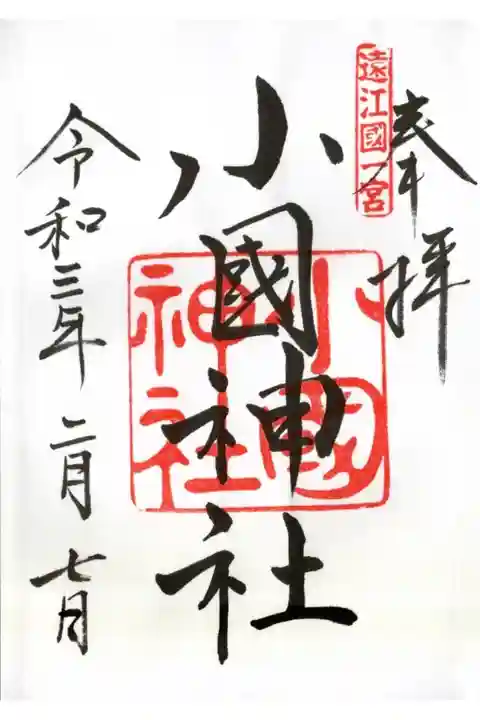 奉拝
遠江國一宮
小國神社
小國
神社
令和三年二月七日